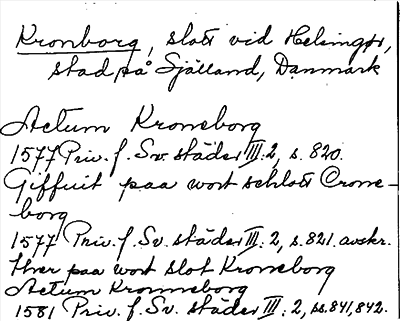 Kronborg, slott vid Helsingør,
stad på Själland, Danmark
Actum Kroneborg
1577 Priv. f. Sv. städer III:2, s. 820.
Giffuit paa wort schlott Crone-
borg
1577 Priv. f. Sv. städer III:2, s. 821. avskr.
Her paa wort slot Kroneborg
Actum Kronneborg
1581 Priv. f. Sv. städer III:2, ss. 841, 842.